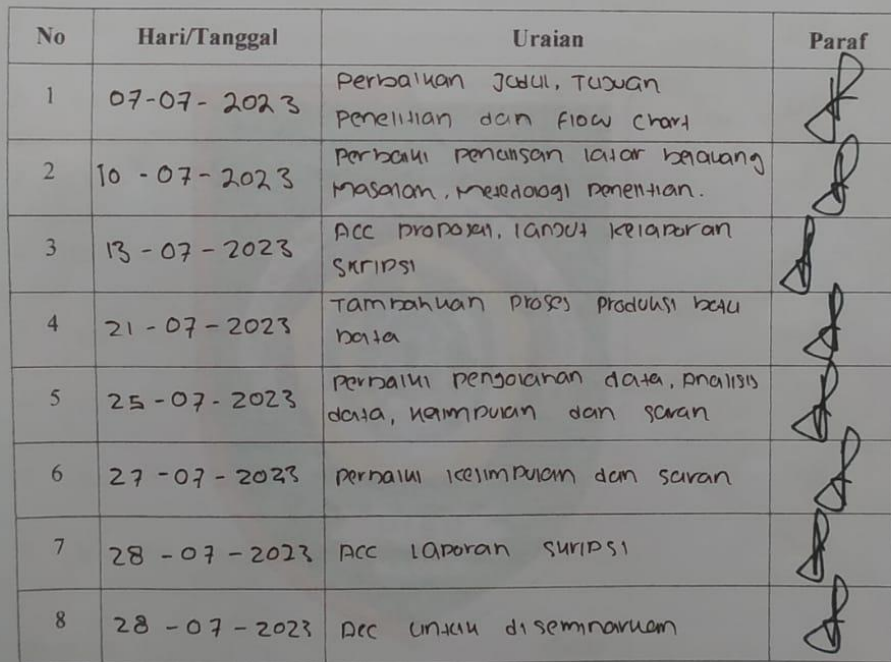 No Hari/Tanggal Uraian Paraf
1 07-07-2023 Perbaikan Judul, Tujuan
Penelitian dan Flow Chart
2 10-07-2023 Perbaiki penulisan latar belakang
Masalah, Metedologi penelitian.
3 13-07-2023 ACC proposal, lanjut kelaporan
Skripsi
4 21-07-2023 Tambahkan proses produksi batu
bata
5 25-07-2023 Perbaiki pengolahan data, Analisis
data, dan saran
6 27-07-2023 Perbaiki kesimpulan dan saran
7 28-07-2023 Acc laporan skripsi
8 28-07-2023 Acc untuk diseminarkan